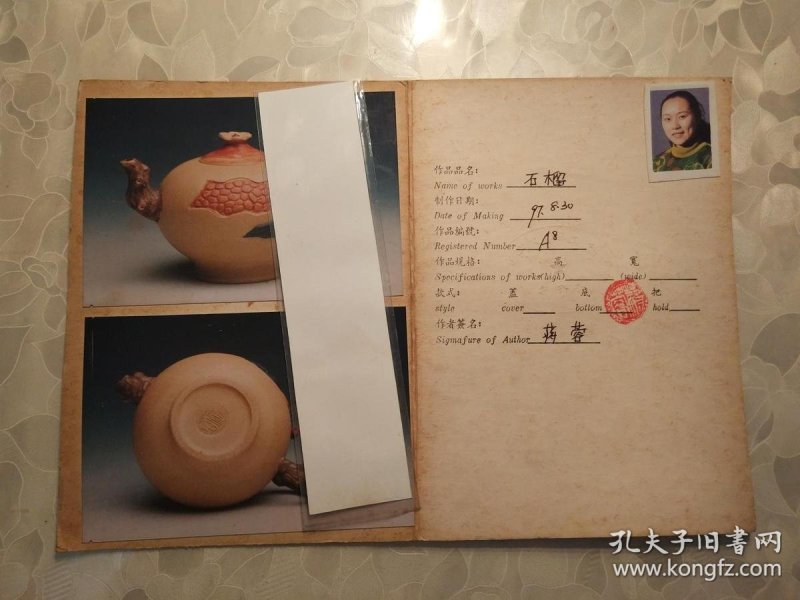 作品品名：
Name of works 石榴
制作日期：
Date of Making 97.8.30
作品編號：
Registered Number A8
作品规格： 高 寬
Specifications of works(high) (wide)
款式： 蓋 底 把
style cover bottom hold
作者簽名：
Sigmafure of Author 蒋蓉
孔夫子旧書网
www.kongfz.com